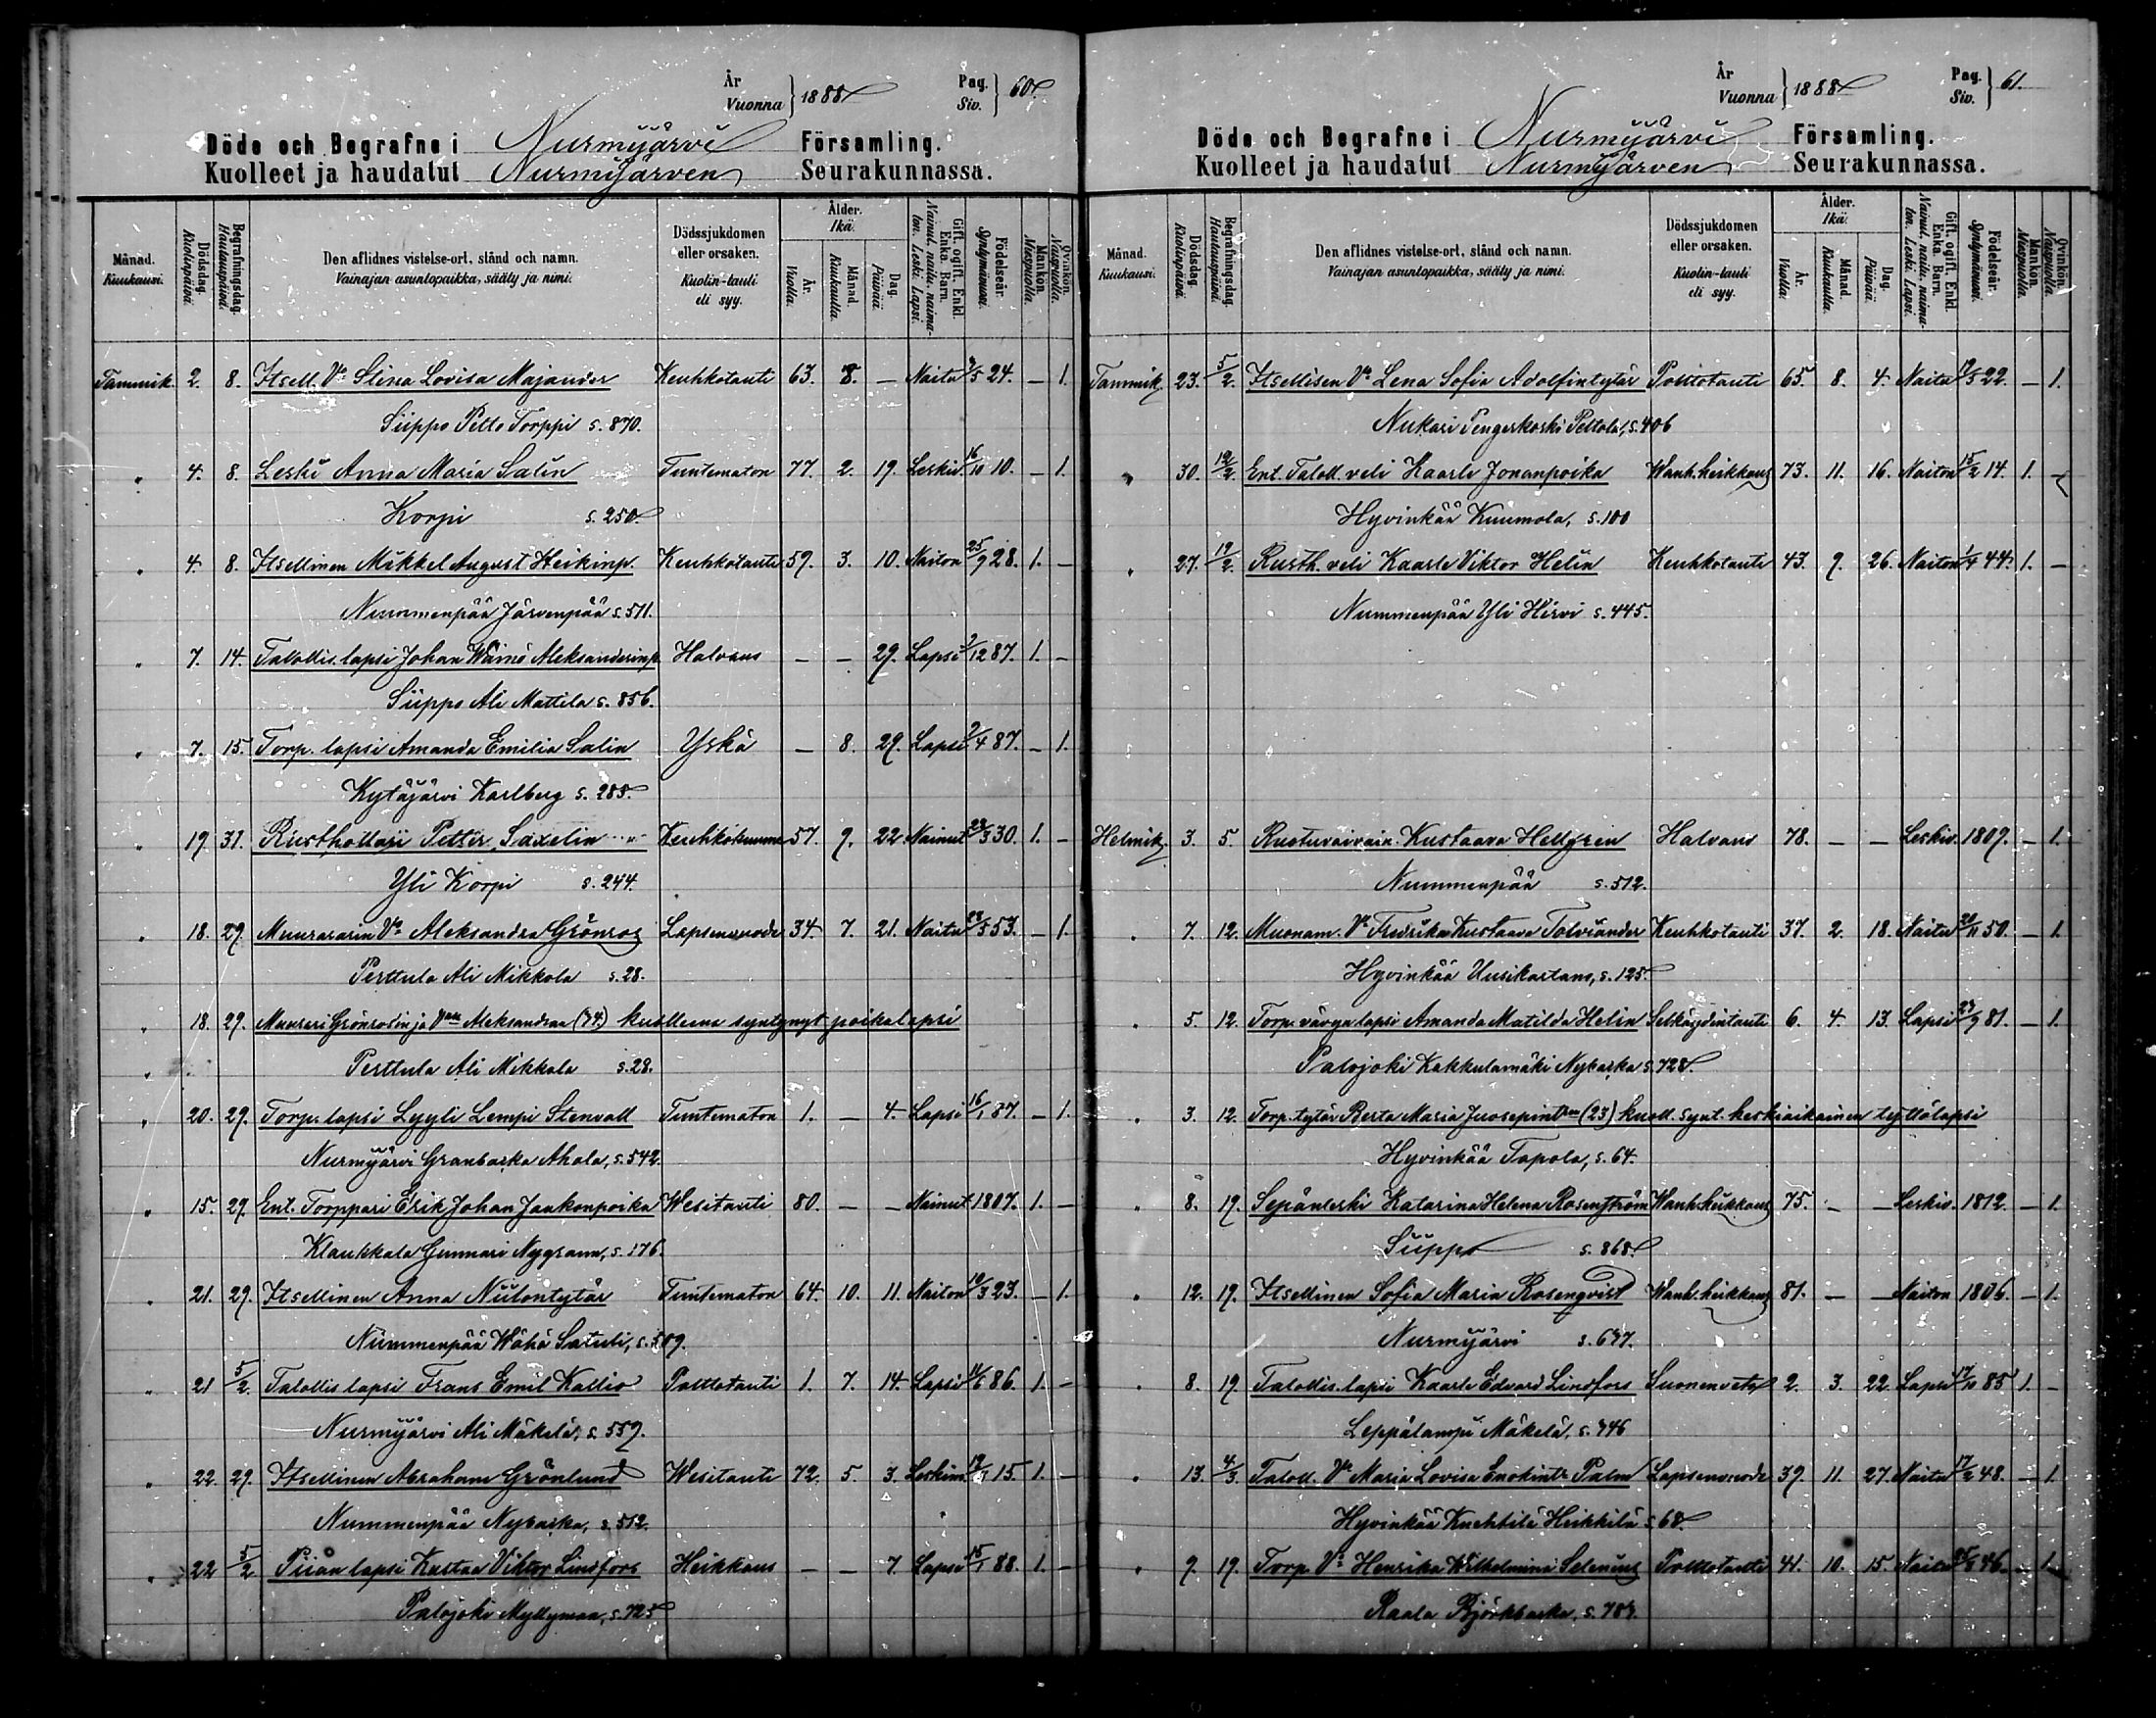 År
Vuonna } 1888 Pag. Siv. } 60.
Döde och Begrafne i Nurmijärvi Församling.
Kuolleet ja haudatut Nurmijärven Seurakunnassa.
Månad. Kuukausi. Dödsdag. Kuolinpäivä. Begrafningsdag. Hautauspäivä. Den aflidnes vistelse-ort, stånd och namn. Vainajan asuntopaikka, sääty ja nimi. Dödssjukdomen eller orsaken. Kuolin-tauti eli syy. Ålder. Ikä. År. Vuotta. Månad. Kuukautta. Dag. Päivää. Gift, ogift. Enkl. Enka. Barn. Nainut, naitu, naimaton. Leski. Lapsi. Födelseår. Syntymävuosi. Mankön. Miespuolia. Qvinkön. Naispuolia.
Tammik. 2. 8. Itsell. Vo Stina Lovisa Majander Keuhkotauti 63. 8. — Naitu 3/5 24. — 1.
Siippo Pelto Torppi s. 870.
" 4. 8. Leski Anna Maria Salin Tuntematon 77. 2. 19. Leskiv. 16/10 10. — 1.
Korpi s. 250.
" 4. 8. Itsellinen Mikkel August Heikinp. Keuhkotauti 59. 3. 10. Naiton 25/9 28. 1. —
Nummenpää Järvenpää s. 511.
" 7. 14. Talollis. lapsi Johan Wäinö Aleksanderinp. Halvaus — — 29. Lapsi 9/12 87. 1. —
Siippo Ali Mattila s. 856.
" 7. 15. Torp. lapsi Amanda Emilia Salin Yskä — 8. 29. Lapsi 9/4 87. — 1.
Kytäjärvi Karlberg s. 285.
" 19 31. Rusthollari Petter Saxelin Keuhkokuume 57. 9. 22 Nainut 28/3 30. 1. —
Yli Korpi s. 244.
" 18. 29. Muurararin Vo Aleksandra Grönroos Lapsenvuode 34. 7. 21. Naitu 28/5 53. — 1.
Perttula Ali Mikkola s. 28.
" 18. 29. Muurari Grönrosin ja Vaan Aleksandraa (34) kuolleena syntynyt poikalapsi
" Perttula Ali Mikkola s. 28.
" 20. 29. Torp. lapsi Lyyli Lempi Stenvall Tuntematon 1. — 4. Lapsi 16/1 87. — 1.
Nurmijärvi Granbacka Ahola, s. 542.
" 15. 29. Ent. Torppari Erik Johan Jaakonpoika Wesitauti 80. — — Nainut 1807. 1. —
Klaukkala Gunnari Nygrann, s. 176.
" 21. 29. Itsellinen Anna Niilontytär Tuntematon 64. 10. 11. Naiton 10/3 23. — 1.
Nummenpää Wähä Satuli, s. 509.
" 21 5/2. Talollis lapsi Frans Emil Kallio Polttotauti 1. 7. 14. Lapsi 11/6 86. 1. —
Nurmijärvi Ali Mäkelä, s. 559.
" 22. 29. Itsellinen Abraham Grönlund Wesitauti 72. 5. 3. Leskim. 15. 1. —
Nummenpää Nybacka, s. 512.
" 22 5/2 Piian lapsi Kustaa Viktor Lindfors Heikkous — — 7. Lapsi 15/1 88. 1. —
Palojoki Myllymaa, s. 725
År
Vuonna } 1888 Pag. Siv. } 61.
Döde och Begrafne i Nurmijärvi Församling.
Kuolleet ja haudatut Nurmijärven Seurakunnassa.
Månad. Kuukausi. Dödsdag. Kuolinpäivä. Begrafningsdag. Hautauspäivä. Den aflidnes vistelse-ort, stånd och namn. Vainajan asuntopaikka, sääty ja nimi. Dödssjukdomen eller orsaken. Kuolin-tauti eli syy. Ålder. Ikä. År. Vuotta. Månad. Kuukautta. Dag. Päivää. Gift, ogift. Enkl. Enka. Barn. Nainut, naitu, naimaton. Leski. Lapsi. Födelseår. Syntymävuosi. Mankön. Miespuolia. Qvinkön. Naispuolia.
Tammik. 23. 5/2. Itsellisen Vo Lena Sofia Adolfintytär Polttotauti 65. 8. 4. Naitu 19/5 22. — 1.
Nukari Pengerkoski Peltola, s. 406
" 30. 12/2. Ent. Taloll. veli Kaarle Jonanpoika Wanh. heikkous 73. 11. 16. Naiton 15/2 14. 1. —
Hyvinkää Kuumola, s. 100
" 27. 19/2. Rusth. veli Kaarle Viktor Helin Keuhkotauti 43. 9. 26. Naiton 1/4 44. 1. —
Nummenpää Yli Hirvi s. 445.
Helmik. 3. 5. Ruotuvaivain. Kustaava Hellgren Halvaus 78. — — Leskiv. 1809. — 1.
Nummenpää s. 512.
" 7. 12. Muonam. Vo Fredrika Kustaava Tolviander Keuhkotauti 37. 2. 18. Naitu 20/11 50. — 1.
Hyvinkää Uusikartano, s. 125.
" 5. 12. Torp. vävyn lapsi Amanda Matilda Helin Selkäydintauti 6. 4. 13. Lapsi 23/9 81. — 1.
Palojoki Kakkulamäki Nybacka s. 728
" 3. 12. Torp. tytär Berta Maria Juosepintren (23) kuoll. synt. keskiaikainen tyttölapsi
Hyvinkää Tapola, s. 64.
" 8. 19. Sepänleski Katarina Helena Rosenström Wanh. heikkous 75. — — Leskiv. 1812. — 1.
Siippo s. 868.
" 12. 19. Itsellinen Sofia Maria Rosenqvist Wanh. heikkous 81. — — Naiton 1806. — 1.
Nurmijärvi s. 677.
" 8. 19. Talollis. lapsi Kaarle Edvard Lindfors Suonenveto 2. 3. 22. Lapsi 17/10 85 1. —
Leppälampi Mäkelä, s. 346
" 13. 4/3. Taloll. Vo Maria Lovisa Enokintr. Palm Lapsenvuode 39. 11. 27. Naitu 17/2 48. — 1.
Hyvinkää Knehtilä Heikkilä s. 68.
" 9. 19. Torp. Vo Henrika Wilhelmina Selenius Polttotauti 41. 10. 15. Naitu 46. — 1.
Raala Björkbacka, s. 783.